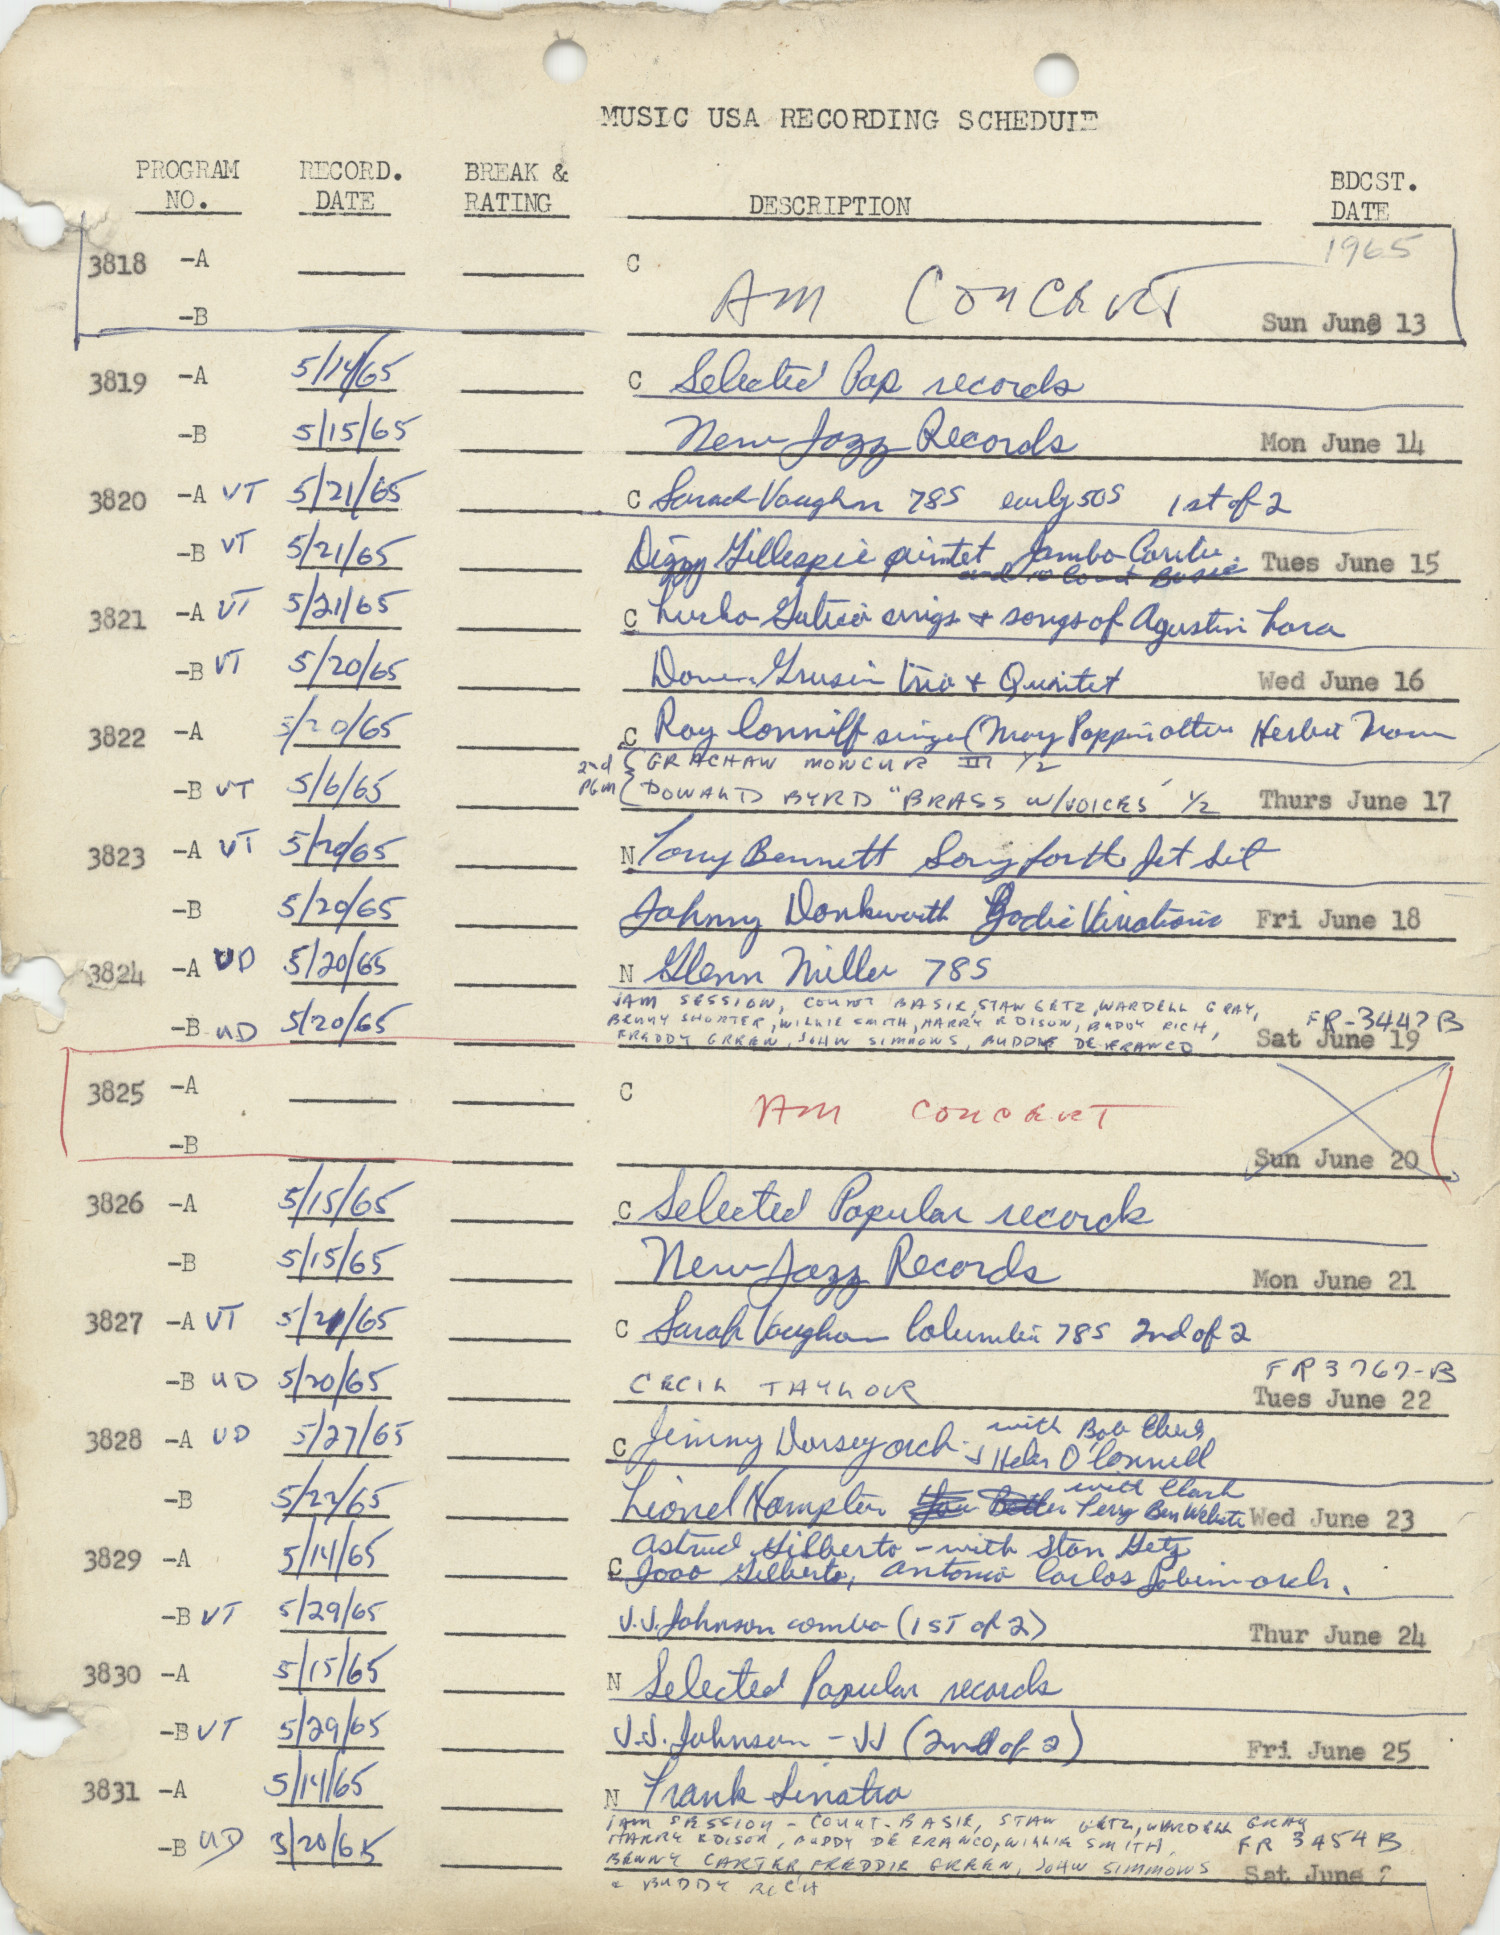 MUSIC USA RECORDING SCHEDULE
PROGRAM NO. RECORD. DATE BREAK & RATING DESCRIPTION BDCST. DATE
1965
3818 -A C AM CONCERT
-B Sun June 13
3819 -A 5/14/65 C Selected Pop records
-B 5/15/65 New Jazz Records Mon June 14
3820 -A VT 5/21/65 C Sarah Vaughn 78S early 50S 1st of 2
-B VT 5/21/65 Dizzy Gillespie quintet Jambo Caribe. Tues June 15
and to Count Basie
3821 -A VT 5/21/65 C sings + songs of Agustin Lara
-B VT 5/20/65 Grusin trio + Quintet Wed June 16
3822 -A 5/20/65 C Ray Conniff singers (Mary Poppins
2nd Pgm { GRACHAN MONCUR III 1/2
-B VT 5/6/65 DONALD BYRD "BRASS W/VOICES" 1/2 Thurs June 17
3823 -A VT 5/20/65 N Tony Bennett Song for the Jet Set
-B 5/20/65 Johnny Dankworth Zodiac Variations Fri June 18
3824 -A UD 5/20/65 N Glenn Miller 78S
JAM SESSION, COUNT BASIE, STAN GETZ, WARDELL GRAY,
-B UD 5/20/65 BENNY SHORTER, WILLIE SMITH, HARRY EDISON, BUDDY RICH, FR-3447B
FREDDY GREEN, JOHN SIMMONS, BUDDIE DE FRANCO Sat June 19
3825 -A C AM CONCERT
-B Sun June 20
3826 -A 5/15/65 C Selected Popular records
-B 5/15/65 New Jazz Records Mon June 21
3827 -A VT 5/21/65 C Sarah Vaughan Columbia 78S 2nd of 2
-B UD 5/20/65 CECIL TAYLOR FR3767-B
Tues June 22
3828 -A UD 5/27/65 C Jimmy Dorsey orch. with Bob Eberly
Helen O'Connell
-B 5/22/65 Lionel Hampton with Clark
Terry Ben Webster Wed June 23
3829 -A 5/14/65 C Astrud Gilberto - with Stan Getz
Joao Gilberto, Antonio Carlos Jobim orch.
-B VT 5/29/65 J.J. Johnson combo (1ST of 2) Thur June 24
3830 -A 5/15/65 N Selected Popular records
-B VT 5/29/65 J.J. Johnson - JJ (2nd of 2) Fri June 25
3831 -A 5/14/65 N Frank Sinatra
JAM SESSION - COUNT BASIE, STAN GETZ, WARDELL GRAY
-B UD 5/20/65 HARRY EDISON, BUDDY DE FRANCO, WILLIE SMITH, FR 3454B
BENNY CARTER, FREDDIE GREEN, JOHN SIMMONS Sat June
& BUDDY RICH